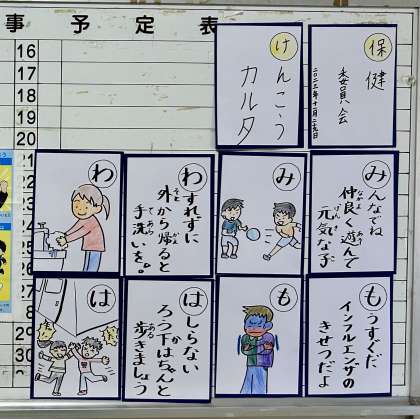 事予定表
16
17
18
19
20
21
22
23
24
25
26
27
28
29
30
31
保健
委員会
二〇二三年十一月二十九日
けんこう
カルタ
み
みんなでね
仲良く遊んで
元気な子
わ
わすれずに
外から帰ると
手洗いを。
も
もうすぐだ
インフルエンザの
きせつだよ
は
はしらない
ろう下はちゃんと
歩きましょう